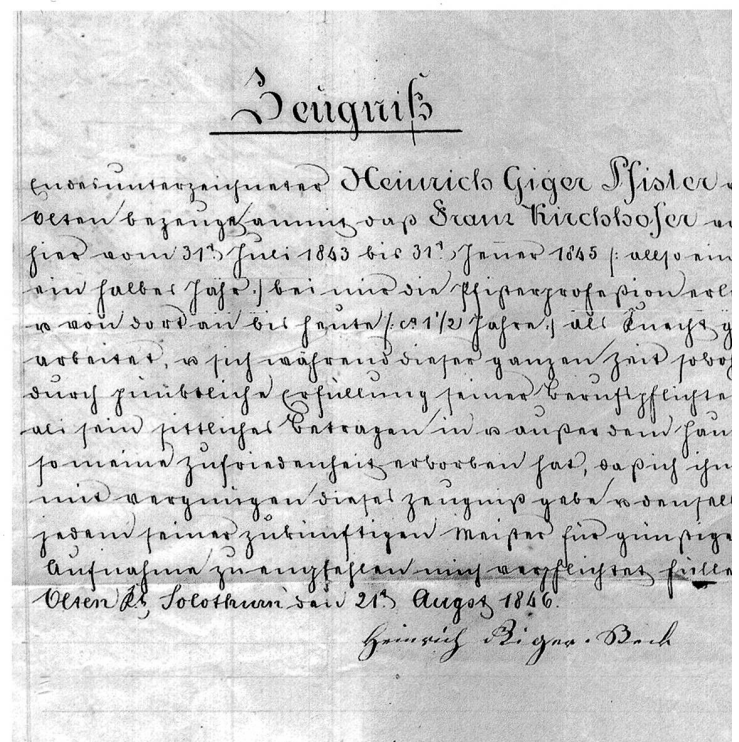 Zeugniß
Endesunterzeichneter Heinrich Giger Pfister
Olten bezeuget ammit daß Franz Kirchhofer
hier vom 31t Juli 1843 bis 31t Jener 1845 /: allso ein
ein halbes Jahr :/ bei mir die Pfisterprofeßion erl
u von dort an bis heute /: ca 1 1/2 Jahre :/ als Knecht g
arbeitet, u sich während dieser ganzen Zeit sowoh
durch pünktliche Erfüllung seiner Berufspflichte
als sein sittliches Betragen in u außer dem Hau
so meine Zufriedenheit erworben hat, daß ich ihm
mit vergnügen dieses Zeugniß gebe u densel
jedem seiner zukünftigen Meister für günstige
Aufnahme zu empfehlen mich verpflichtet fühle
Olten Kt. Solothurn den 21t Augst 1846.
Heinrich Giger. Beck